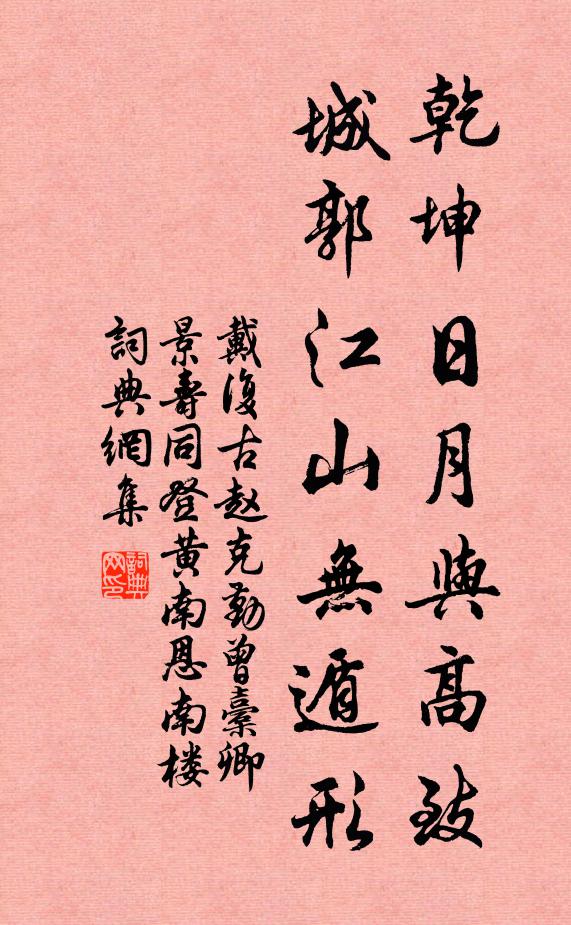 乾坤日月與高致
城郭江山無遁形
戴復古赵克勤曾橐卿
景壽同登黄南恩南楼
詞典網集
詞典网印